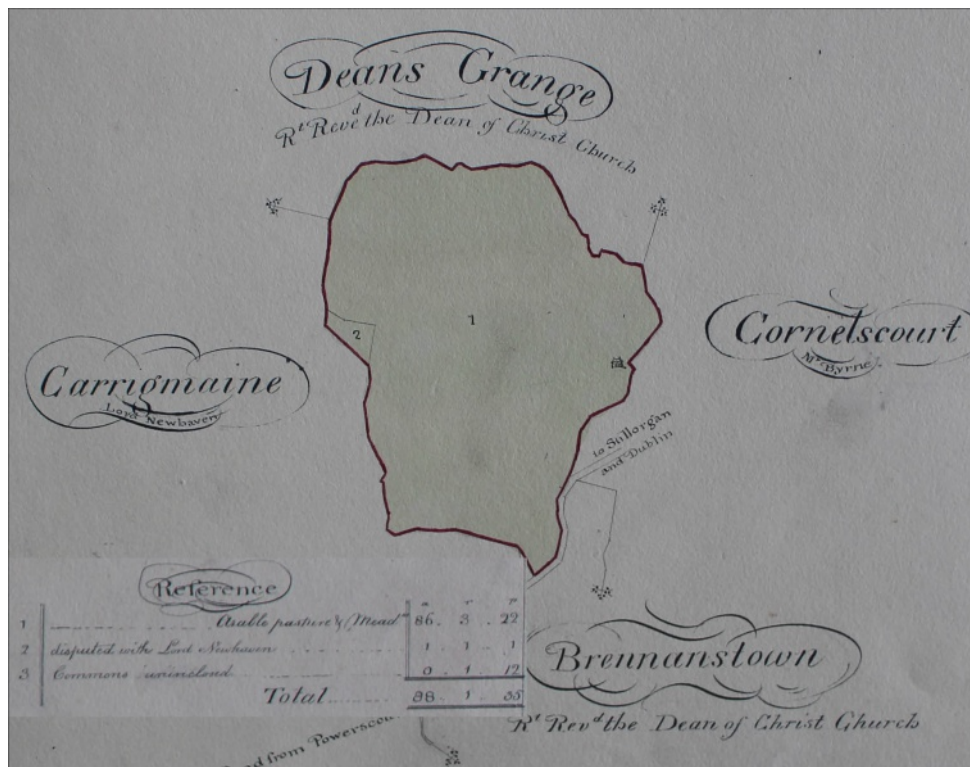 Deans Grange
Rt Revd the Dean of Christ Church
1
2
Cornelscourt
Mr Byrne
Carrigmaine
Lord Newhaven
to Stillorgan
and Dublin
Reference
a. r. p
1 Arable pasture & Meadw 86. 3. 22
2 disputed with Lord Newhaven 1. 1. 1
3 Commons uninclosd 0. 1. 12
Total 88. 1. 35
Brennanstown
Rt Revd the Dean of Christ Church
from Powersco